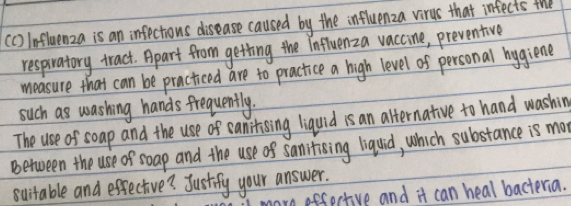 (c) Influenza is an infectious disease caused by the influenza virus that infects the
respiratory tract. Apart from getting the Influenza vaccine, preventive
measure that can be practiced are to practice a high level of personal hygiene
such as washing hands frequently.
The use of soap and the use of sanitising liquid is an alternative to hand washin
Between the use of soap and the use of sanitising liquid, which substance is mor
suitable and effective? Justify your answer.
more effective and it can heal bacteria.